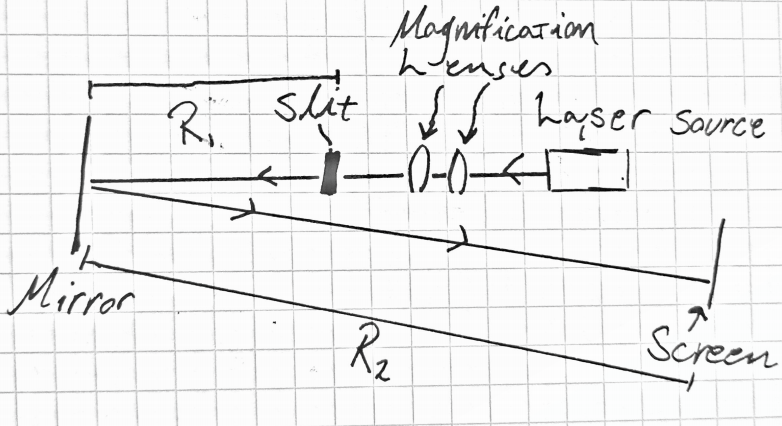 Magnification
Lenses
R1
Slit
Laser source
Mirror
R2
Screen